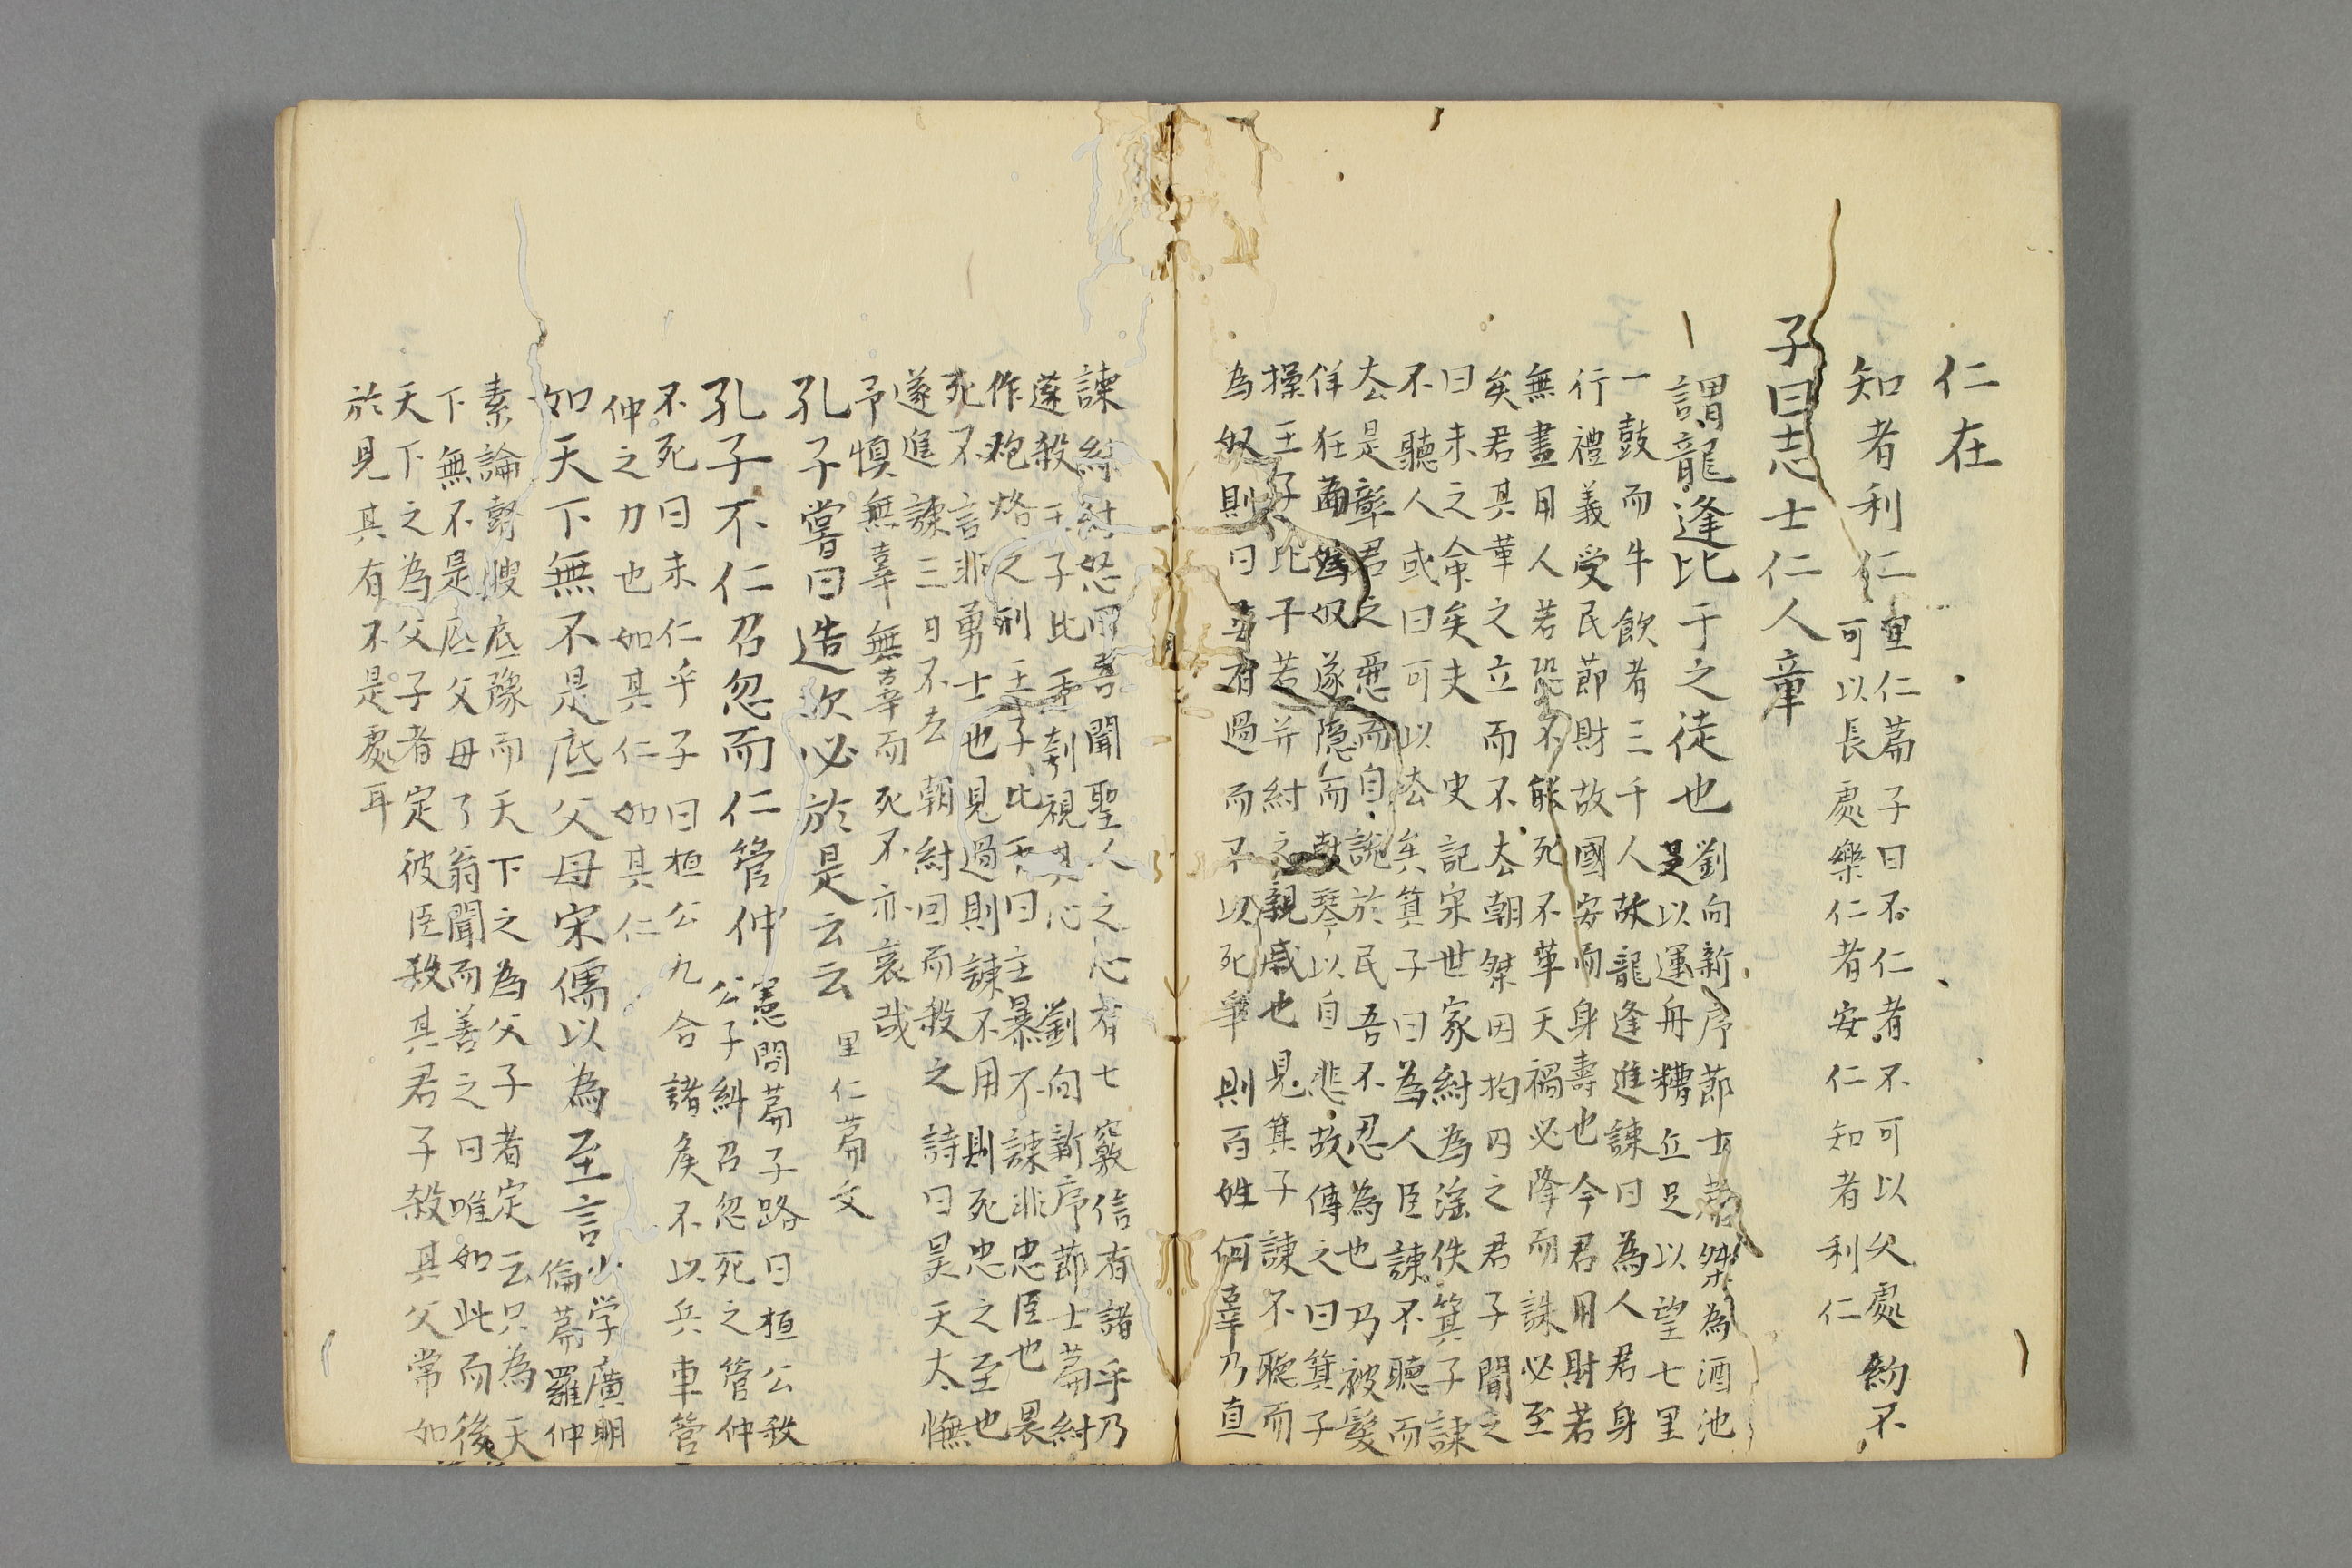 仁在
知者利仁
里仁萹子曰不仁者不可以久處約不
可以長處樂仁者安仁知者利仁
子曰志士仁人章
謂龍逢比干之徒也
劉向新序節士萹桀為酒池
是以運舟糟丘足以望七里
一鼓而牛飲者三千人故龍逢進諫曰為人君身
行禮義受民節財故國安而身壽也今君用財若
無盡用人若恐不能死不革天禍必降而誅必至
矣君其革之立而不去朝桀因拘囚之君子聞之
曰未之命矣夫 史記宋世家紂為淫佚箕子諫
不聽人或曰可以去矣箕子曰為人臣諫不聽而
去是彰君之惡而自說於民吾不忍為也乃被髮
佯狂而為奴遂隱而鼓琴以自悲故傳之曰箕子
操王子比干者并紂之親戚也見箕子諫不聽而
為奴則曰君有過而不以死爭則百姓何辜乃直
諫紂紂怒曰吾聞聖人之心有七竅信有諸乎乃
遂殺王子比干刳視其心 劉向新序節士萹紂
作炮烙之刑王子比干曰主暴不諫非忠臣也畏
死不言非勇士也見過則諫不用則死忠之至也
遂進諫三日不去朝紂囙而殺之詩曰昊天太憮
予慎無辜無辜而死不亦哀哉
孔子嘗曰造次必於是云云
里仁萹文
孔子不仁召忽而仁管仲
憲問萹子路曰桓公殺
公子糾召忽死之管仲
不死曰未仁乎子曰桓公九合諸矦不以兵車管
仲之力也如其仁如其仁
如天下無不是底父母宋儒以為至言
小学廣明
倫萹羅仲
素論瞽瞍底豫而天下之為父子者定云只為天
下無不是底父母了翁聞而善之曰唯如此而後
天下之為父子者定彼臣殺其君子殺其父常如
於見其有不是處耳